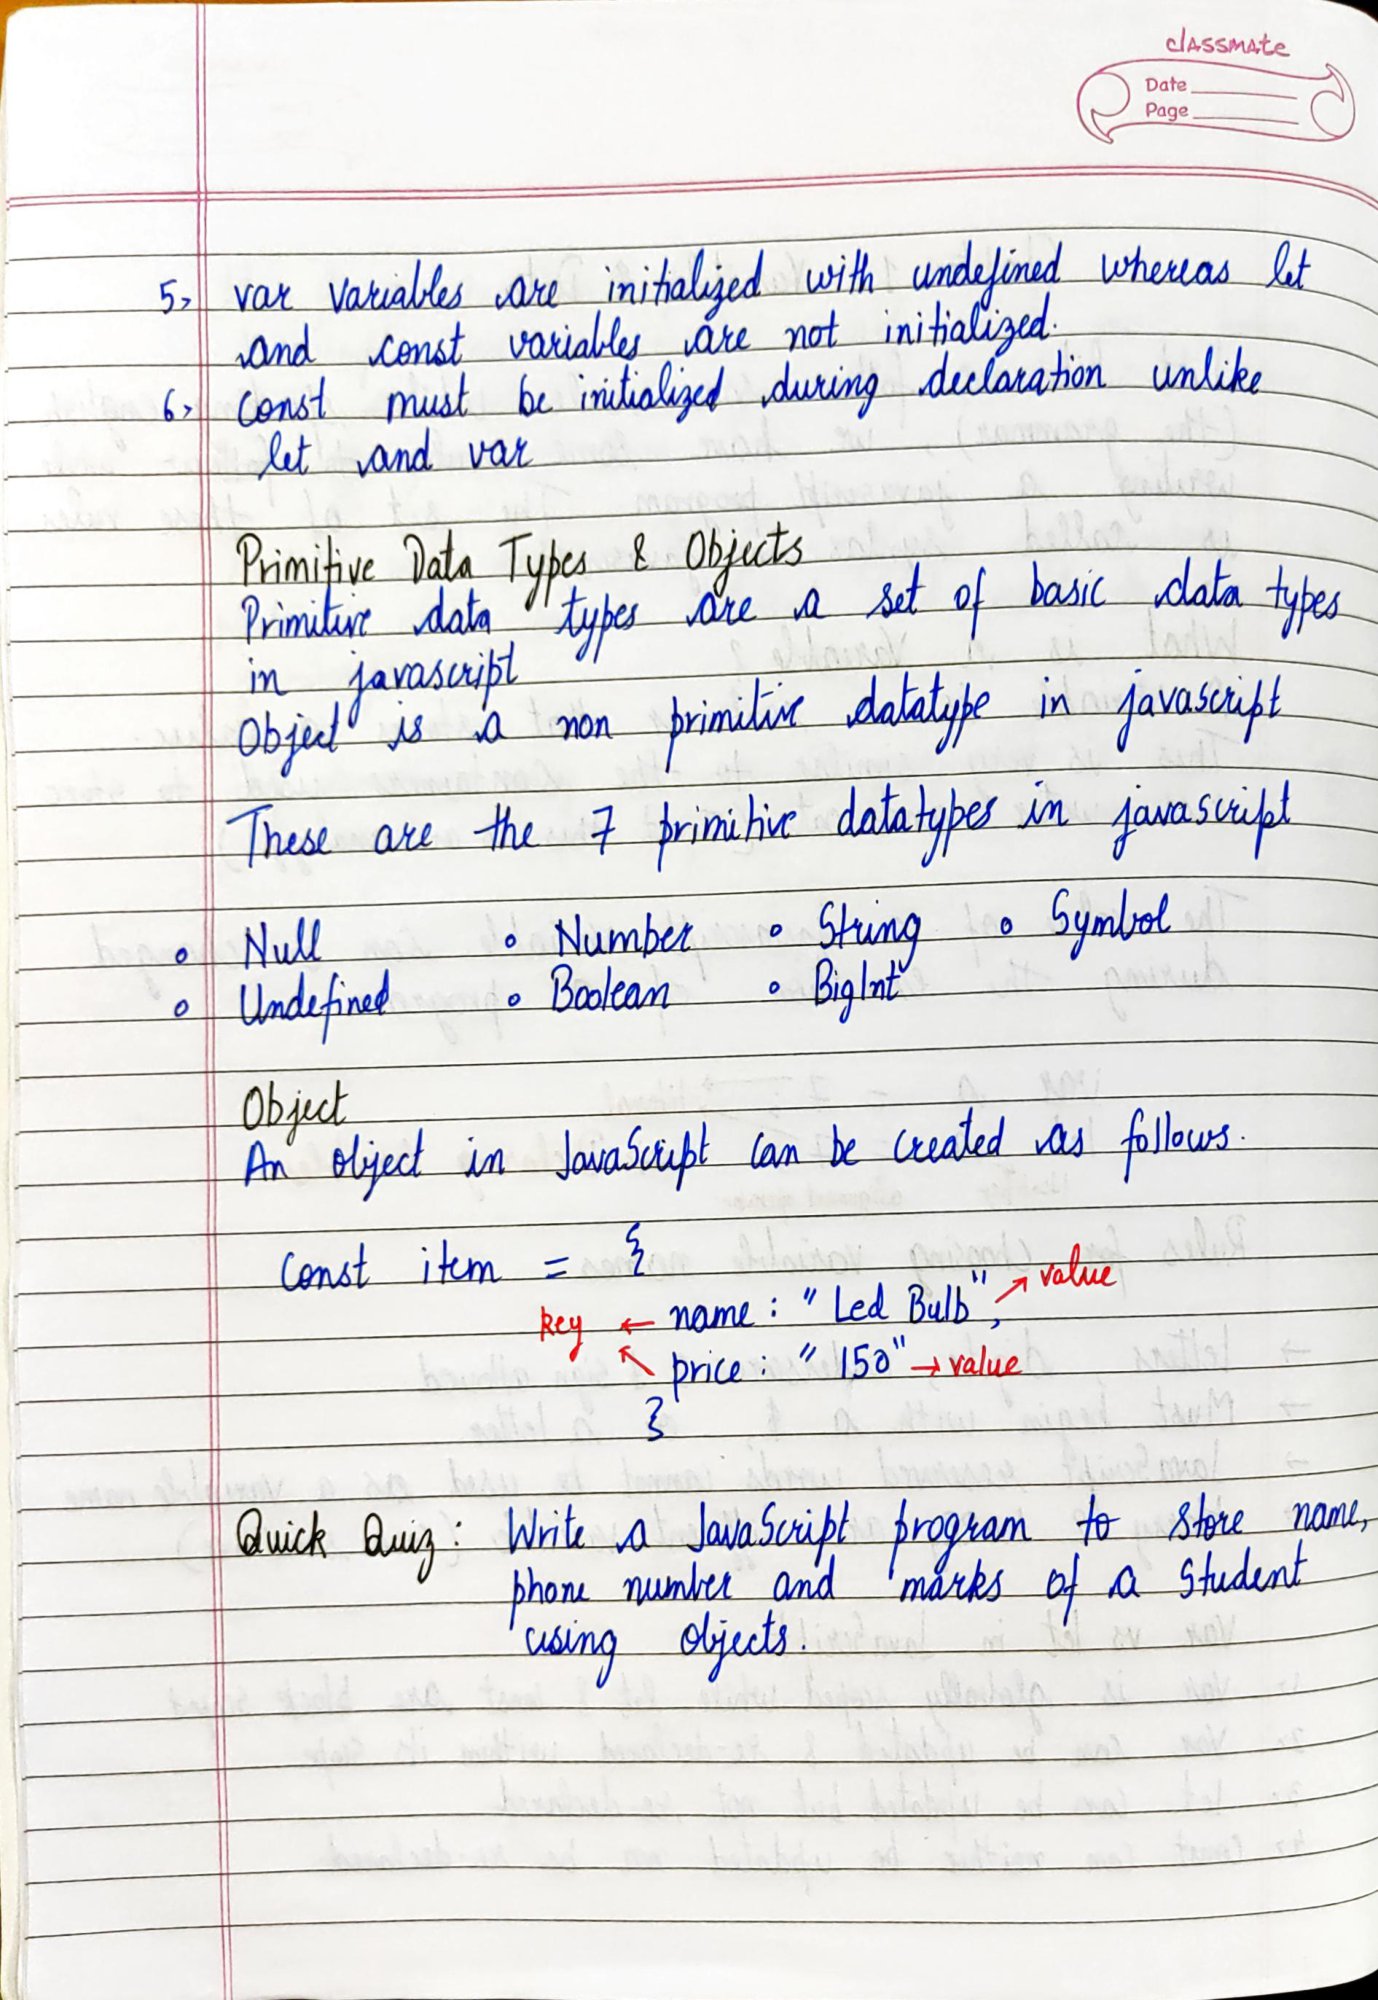 classmate
Date
Page
5> var variables are initialized with undefined whereas let
and const variables are not initialized.
6> const must be initialized during declaration unlike
let and var
Primitive Data Types & Objects
Primitive data types are a set of basic data types
in javascript
Object is a non primitive datatype in javascript
These are the 7 primitive datatypes in javascript
∘ Null ∘ Number ∘ String ∘ Symbol
∘ Undefined ∘ Boolean ∘ BigInt
Object
An object in JavaScript can be created as follows.
Const item = {
key ← name : "Led Bulb", → value
↖ price : "150" → value
}
Quick Quiz : Write a JavaScript program to store name,
phone number and marks of a student
using objects.